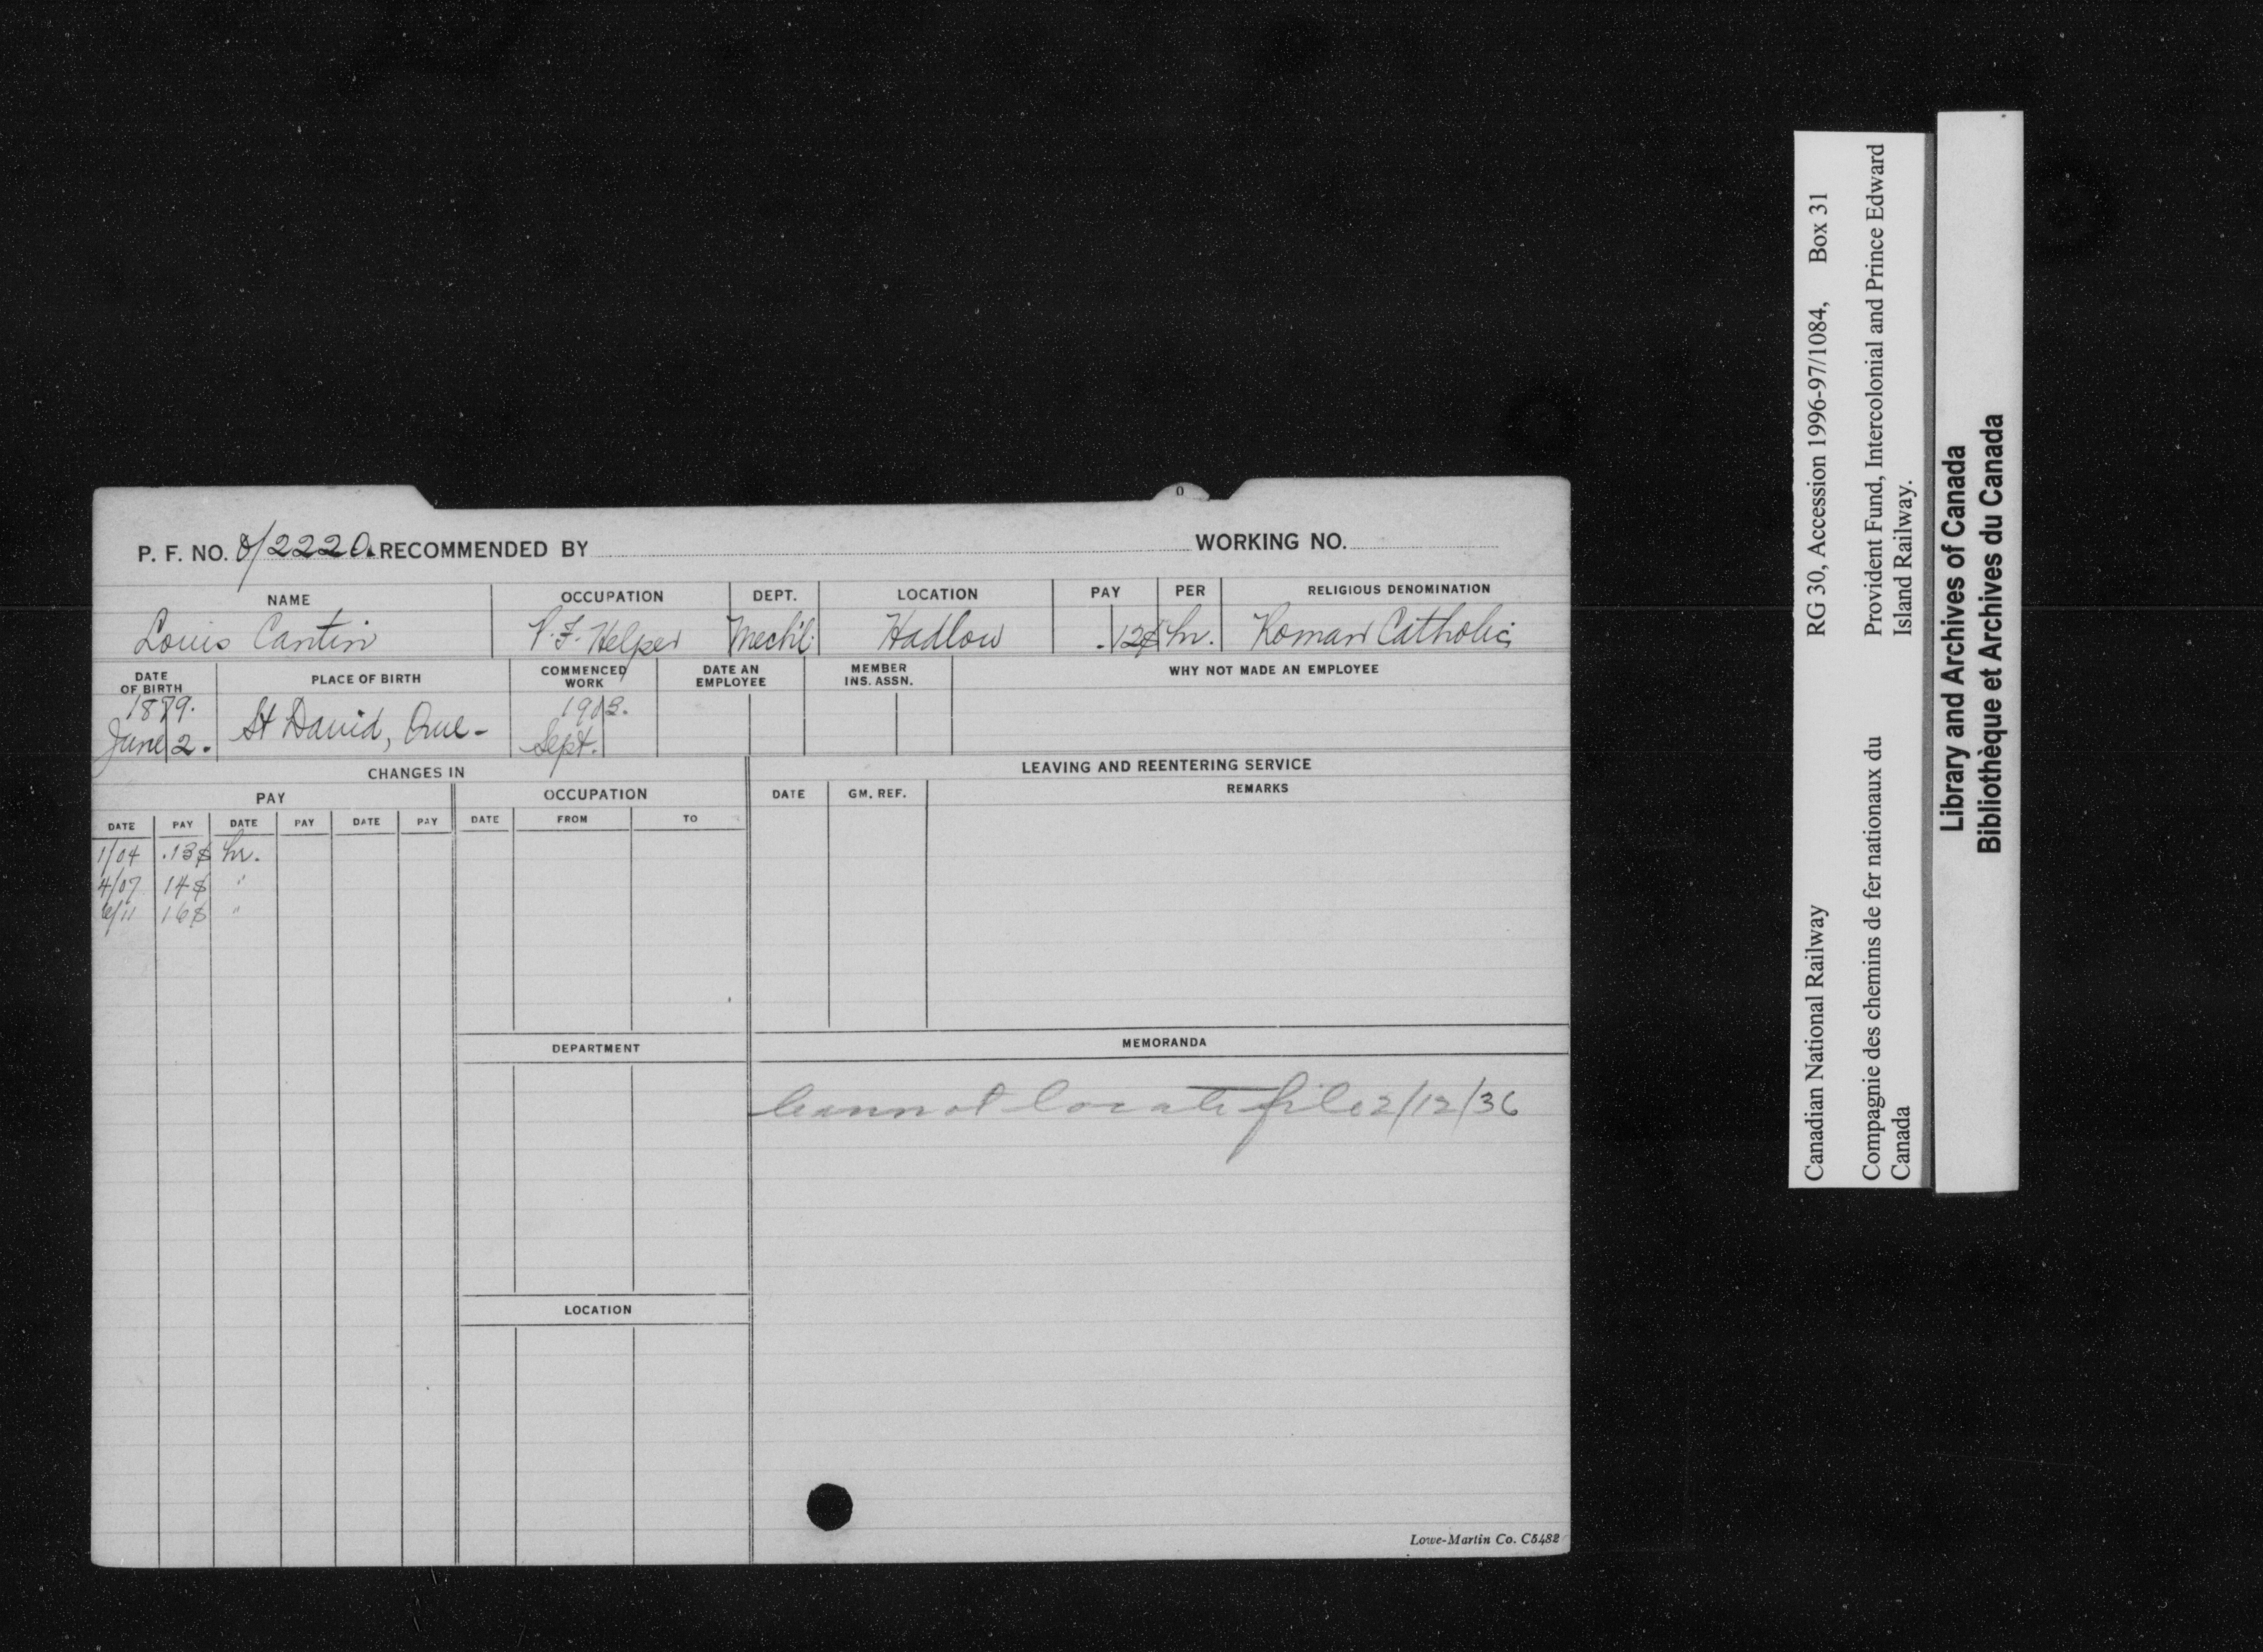 0
P. F. NO. 0/2220. RECOMMENDED BY WORKING NO.
NAME OCCUPATION DEPT. LOCATION PAY PER RELIGIOUS DENOMINATION
Louis Cantin P.F. Helper Mech'l Hadlow .12¢ hr. Roman Catholic
DATE OF BIRTH PLACE OF BIRTH COMMENCED WORK DATE AN EMPLOYEE MEMBER INS. ASSN. WHY NOT MADE AN EMPLOYEE
1879. 1903.
June 2. St David, Que- Sept.
CHANGES IN LEAVING AND REENTERING SERVICE
PAY OCCUPATION DATE GM. REF. REMARKS
DATE PAY DATE PAY DATE PAY DATE FROM TO
1/04 .13¢ hr.
4/07 14¢ "
6/11 16¢ "
DEPARTMENT MEMORANDA
Cannot locate file 2/12/36
LOCATION
Lowe-Martin Co. C5482
Canadian National Railway RG 30, Accession 1996-97/1084, Box 31
Compagnie des chemins de fer nationaux du Canada
Provident Fund, Intercolonial and Prince Edward Island Railway.
Library and Archives of Canada
Bibliothèque et Archives du Canada